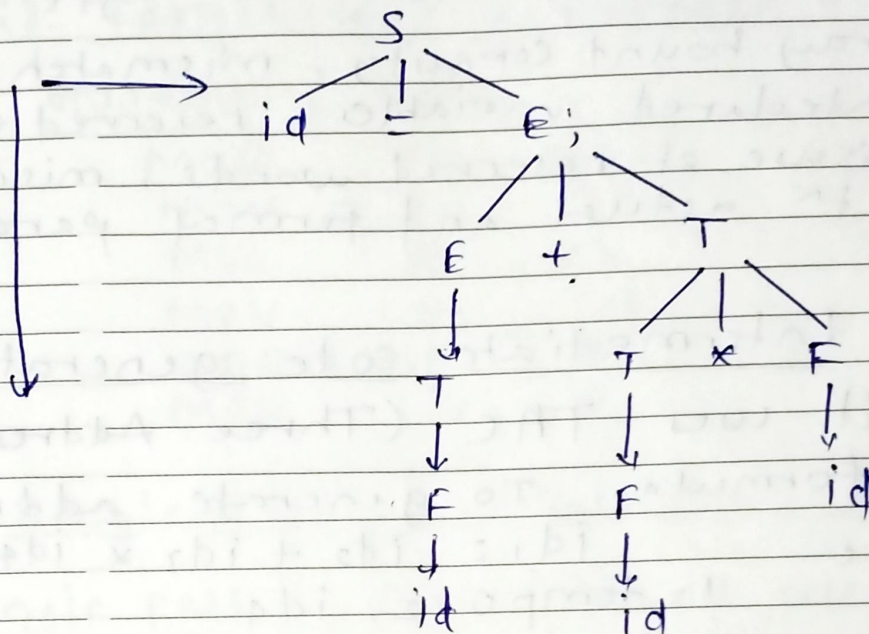 S
id = E;
E + T
T T * F
F F id
id id